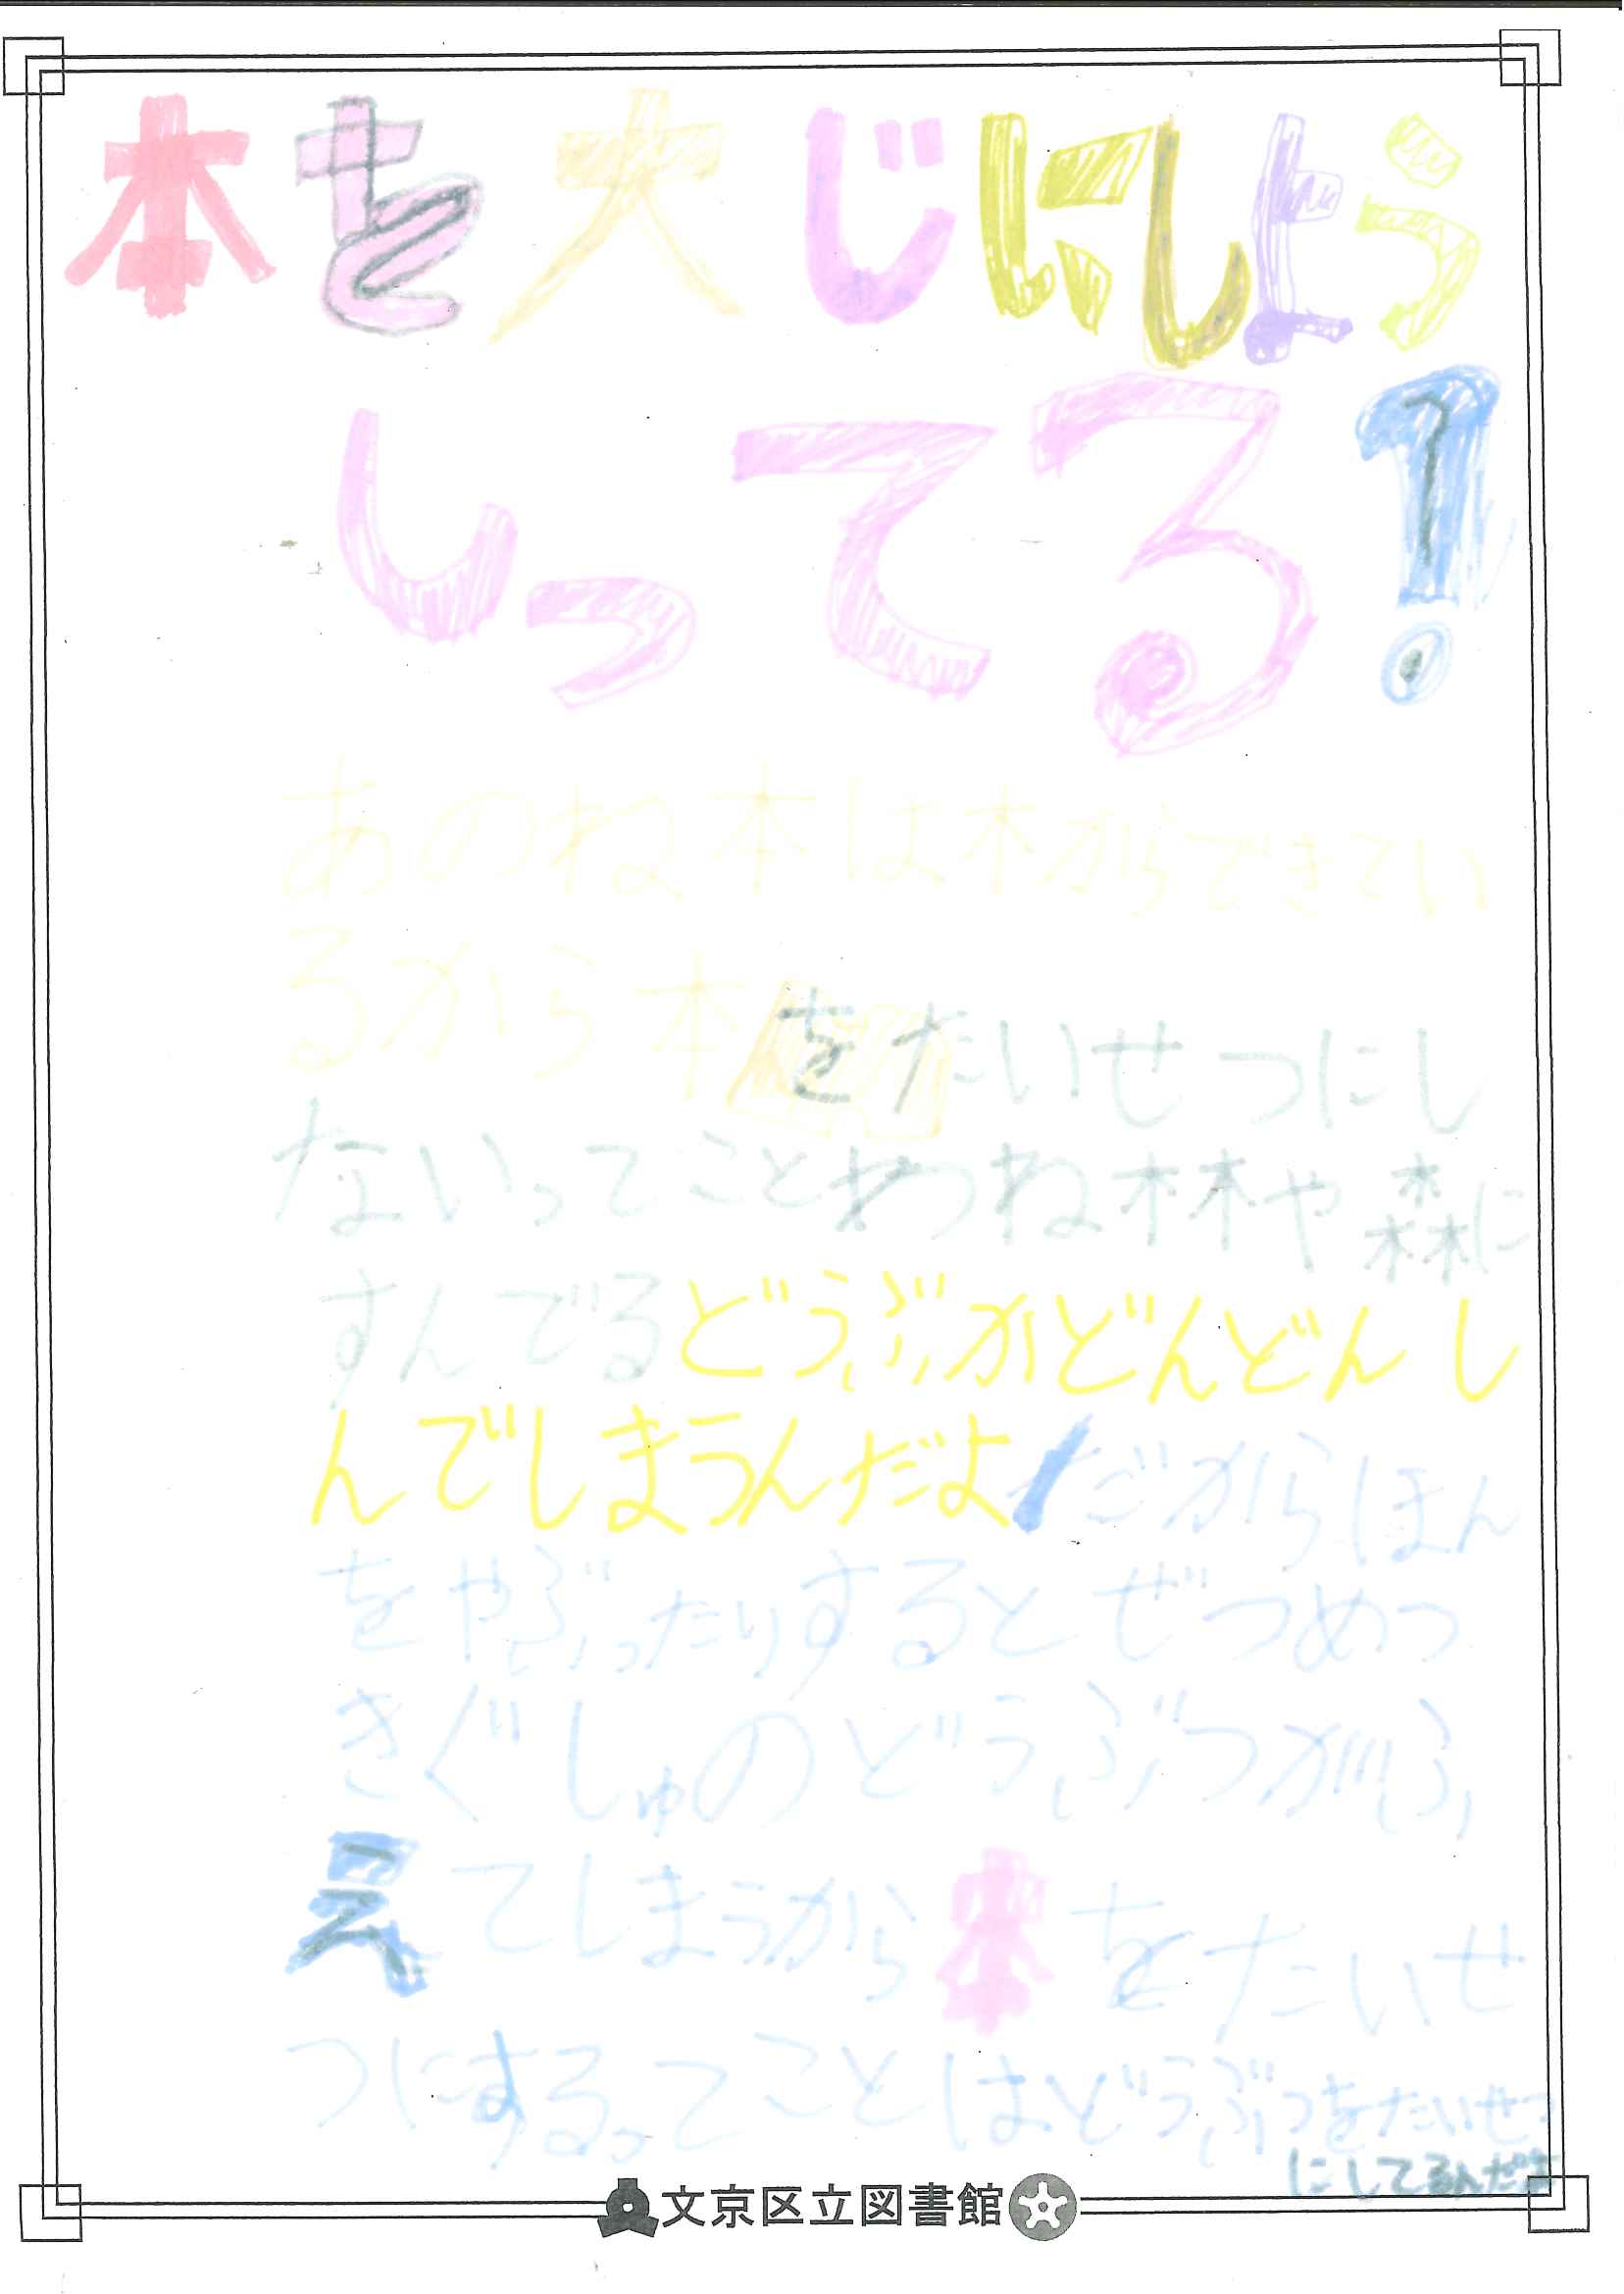 本を大じにしよう
しってる!
あのね本は木からできてい
るから本をたいせつにし
ないってことわつね林や森に
すんでるどうぶがどんどんし
んでしまうんだよ!だからほん
をやぶったりするとぜつめつ
きぐしゅのどうぶつがふ
えてしまうから本をたいせ
つにするってことはどうぶつをたいせつ
にしてるんだよ
文京区立図書館